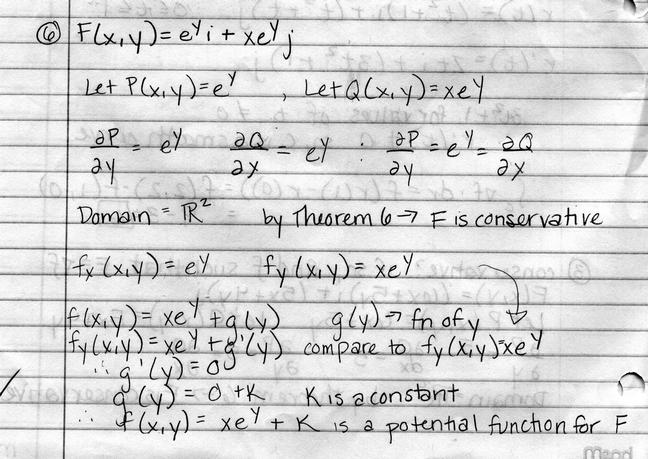 ⑥ F(x,y) = e^y i + xe^y j
Let P(x,y) = e^y , Let Q(x,y) = xe^y
∂P/∂y = e^y ∂Q/∂x = e^y ∴ ∂P/∂y = e^y = ∂Q/∂x
Domain = ℝ² by Theorem 6 → F is conservative
fx(x,y) = e^y fy(x,y) = xe^y
f(x,y) = xe^y + g(y) g(y) → fn of y
fy(x,y) = xe^y + g'(y) compare to fy(x,y) = xe^y
∴ g'(y) = 0
g(y) = 0 + K K is a constant
∴ f(x,y) = xe^y + K is a potential function for F